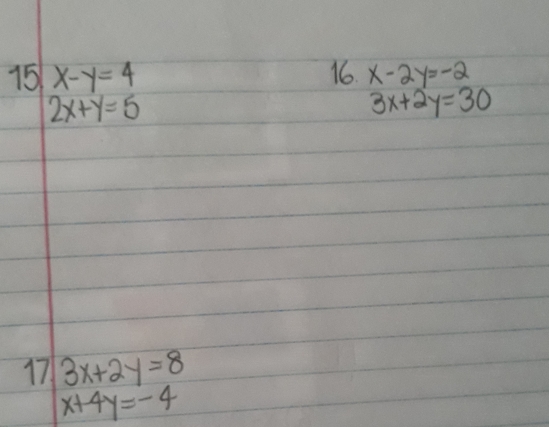 15. x-y=4
2x+y=5
16. x-2y=-2
3x+2y=30
17. 3x+2y=8
x+4y=-4